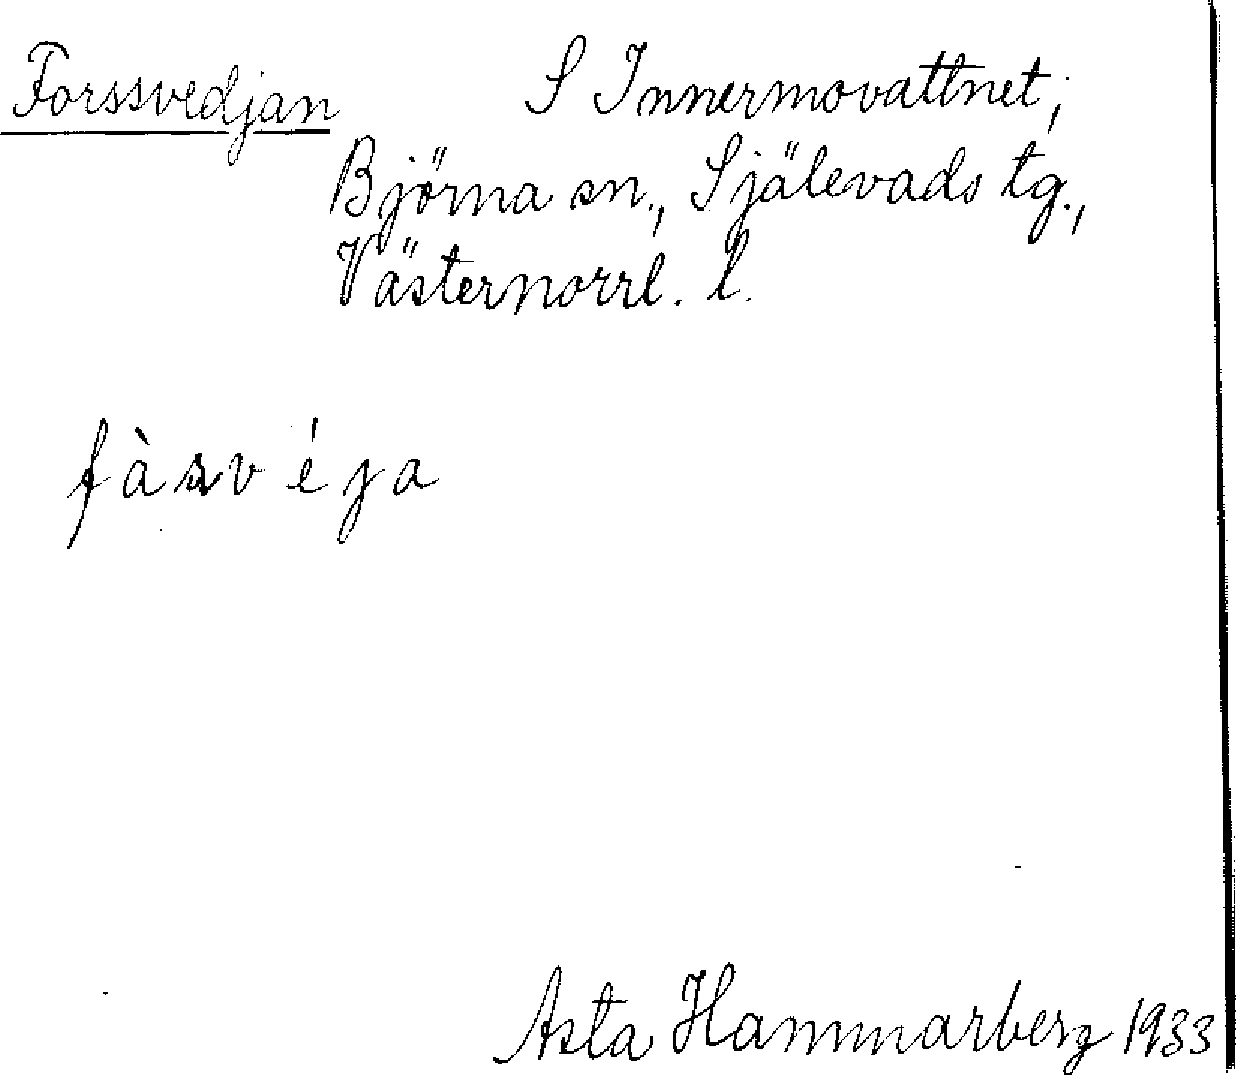 Forssvedjan S Innermovattnet,
Björna sn., Själevads tg.,
Västernorrl. l.
fàsvéja
Asta Hammarberg 1933